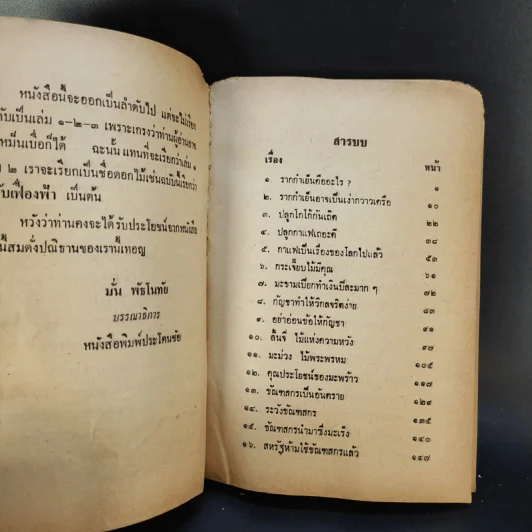 หนังสือนี้จะออกเป็นลำดับไป แต่จะไม่เรียก
เป็นเล่ม ๑-๒-๓ เพราะเกรงว่าท่านผู้อ่านอาจ
เบื่อก็ได้ ฉะนั้น แทนที่จะเรียกว่าเล่ม ๑
๒ เราจะเรียกเป็นชื่อดอกไม้เช่นฉบับนี้เรียกว่า
เฟื่องฟ้า เป็นต้น
หวังว่าท่านคงจะได้รับประโยชน์จากหนังสือ
นี้สมดั่งปณิธานของเรานี้เทอญ
มั่น พัธโนทัย
บรรณาธิการ
หนังสือพิมพ์ประโคนชัย
สารบบ
เรื่อง หน้า
๑. รากกำเย็นคืออะไร ? ๑
๒. รากกำเย็นอาจเป็นเง่ากวาวเครือ ๑๐
๓. ปลูกโกโก้กันเถิด ๒๒
๔. ปลูกกาแฟเถอะดี ๓๘
๕. กาแฟเป็นเรื่องของโลกไปแล้ว ๕๓
๖. กระเจี๊ยบไม้มีคุณ ๖๑
๗. มะขามเปียกทำเงินปีละมาก ๆ ๗๒
๘. กัญชาทำให้วิกลจริตง่าย ๘๓
๙. อย่าอ่อนข้อให้กัญชา ๙๑
๑๐. ลิ้นจี่ ไม้แห่งความหวัง ๙๗
๑๑. มะม่วง ไม้พระพรหม ๑๐๕
๑๒. คุณประโยชน์ของมะพร้าว ๑๑๗
๑๓. ขัณฑสกรเป็นอันตราย ๑๒๗
๑๔. ระวังขัณฑสกร ๑๓๕
๑๕. ขัณฑสกรนำมาซึ่งมะเร็ง ๑๔๐
๑๖. สหรัฐห้ามใช้ขัณฑสกรแล้ว ๑๔๗